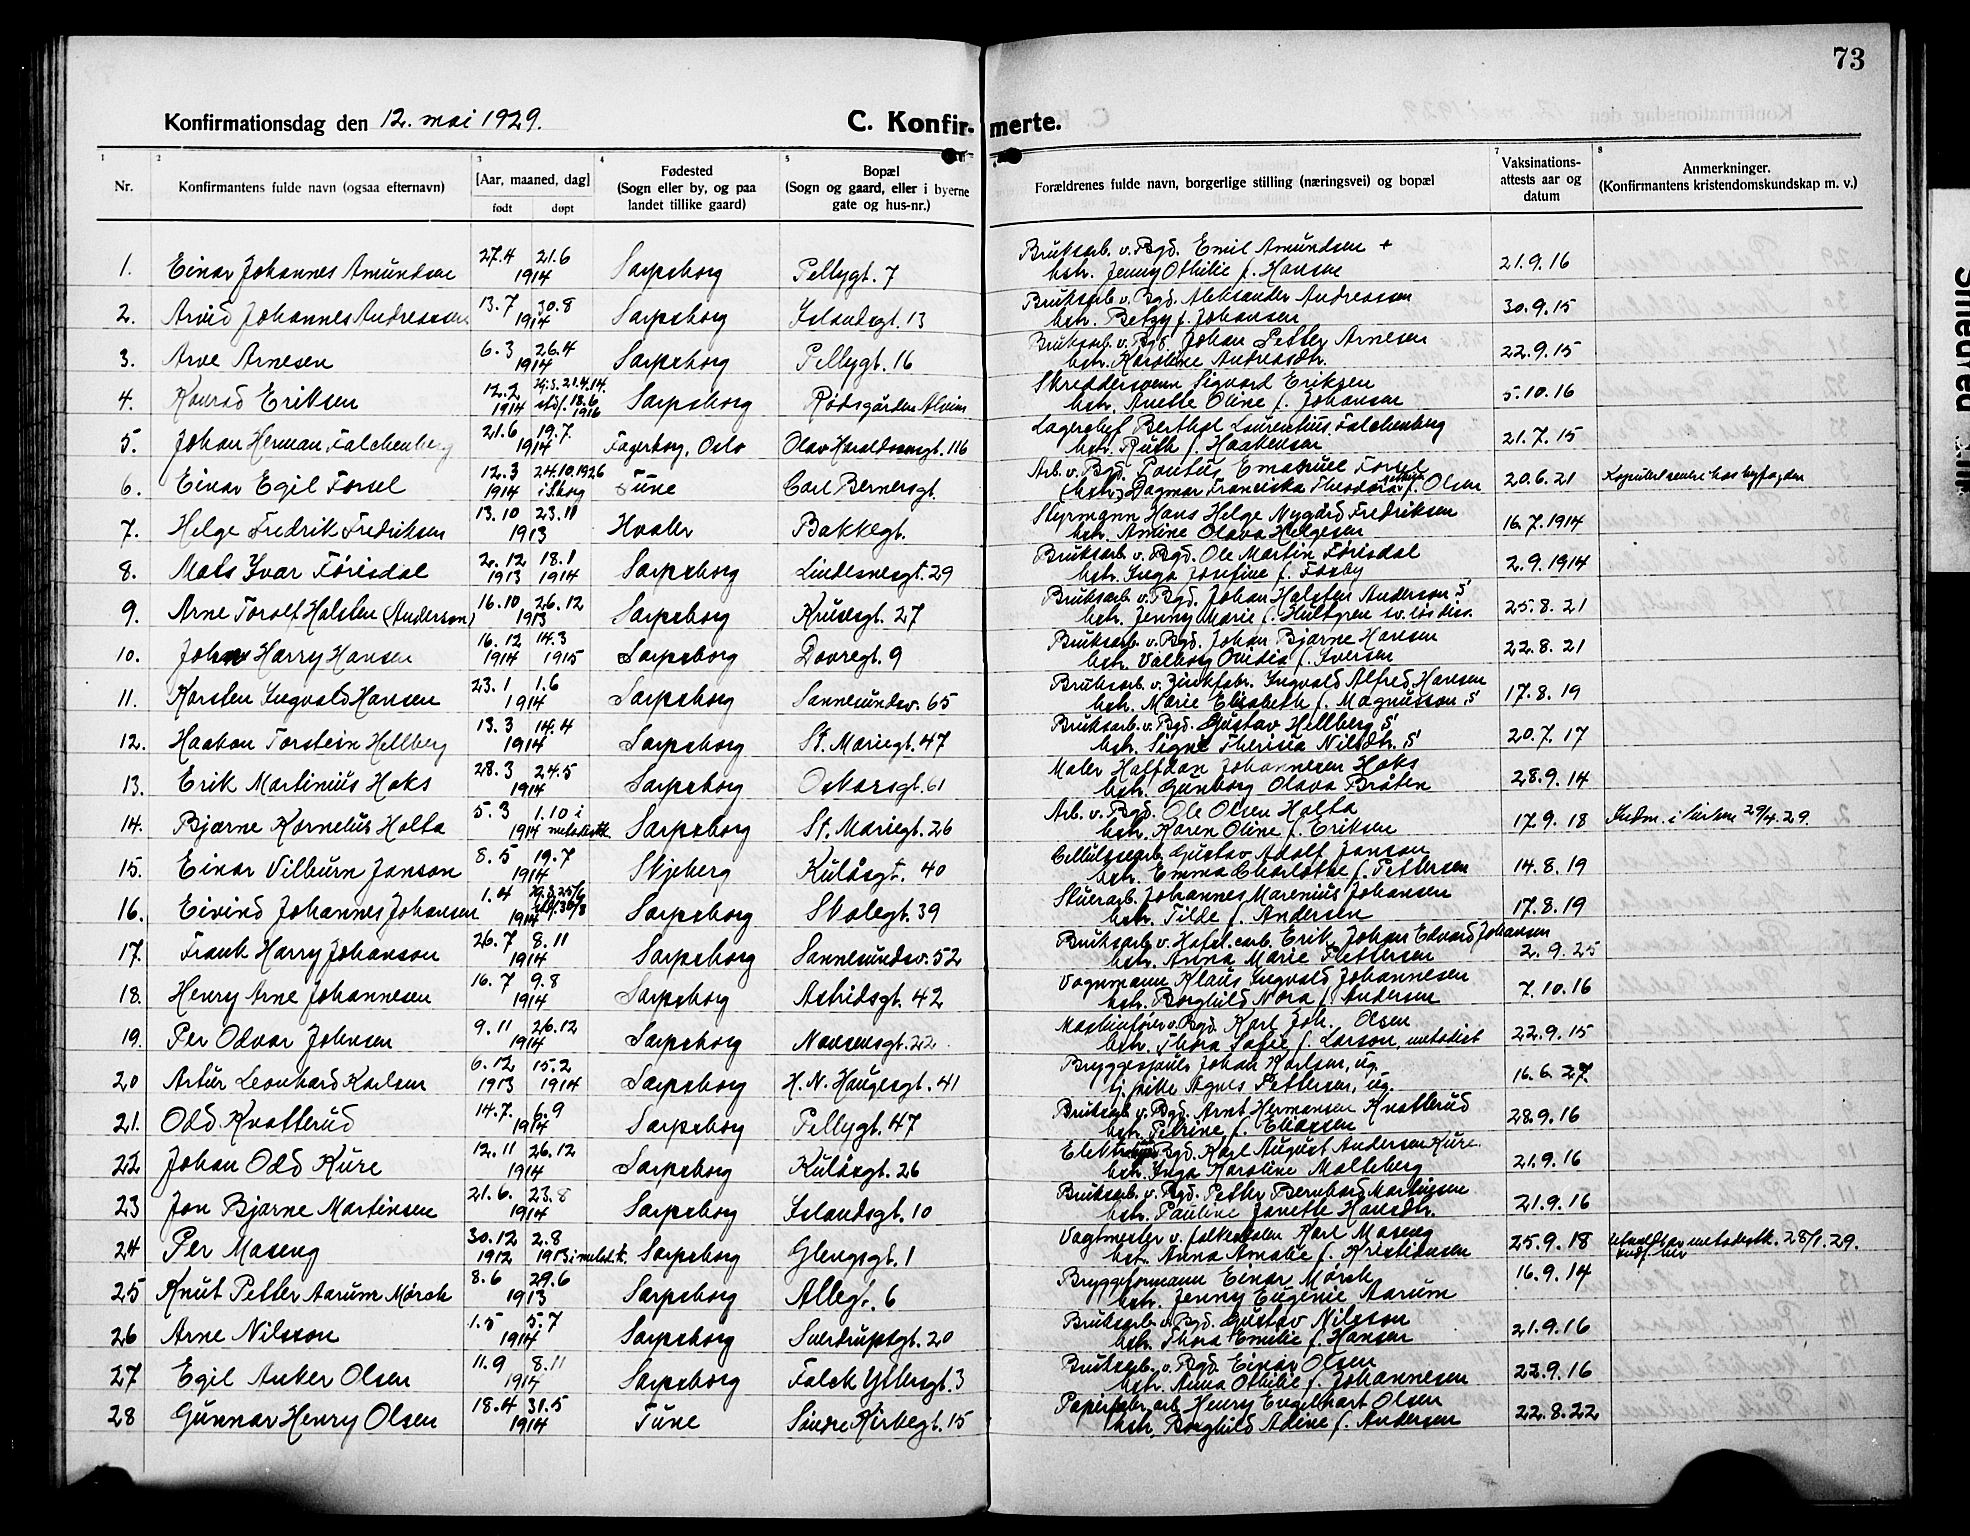 73
Konfirmationsdag den 12. mai 1929.
C. Konfirmerte.
1 2 3 4 5 7 8
Nr.
Konfirmantens fulde navn (ogsaa efternavn)
[Aar, maaned, dag]
født døpt
Fødested
(Sogn eller by, og paa
landet tillike gaard)
Bopæl
(Sogn og gaard, eller i byerne
gate og hus-nr.)
Forældrenes fulde navn, borgerlige stilling (næringsvei) og bopæl
Vaksinations-
attests aar og
datum
Anmerkninger.
(Konfirmantens kristendomskundskap m. v.)
1. Einar Johannes Amundsen 27.4 21.6 1914 Sarpsborg Pellygt. 7 Bruksarb. v. Bgd. Emil Amundsen +
hstr. Jenny Othilie f. Hansen 21.9.16
2. Arvid Johannes Andreassen 13.7 30.8 1914 Sarpsborg Islandsgt. 13 Bruksarb. v. Bgd. Aleksander Andreassen
hstr. Betzy f. Johansen 30.9.15
3. Arve Arnesen 6.3 26.4 1914 Sarpsborg Pellygt. 16 Bruksarb. v. Bgd. Johan Petter Arnesen
hstr. Karoline Andreasdtr. 22.9.15
4. Konrad Eriksen 12.2 1914 21.4.14. stadf. 18.6 1916 Sarpsborg Rødsgården Alvim Skreddersvenn Sigvard Eriksen
hstr. Anette Oline f. Johansen 5.10.16
5. Johan Herman Falchenberg 21.6 19.7. 1914 Fagerborg, Oslo Olav Haraldssonsgt. 116 Lagerchef Berthol Laurentius Falchenberg
hstr. Ruth f. Haakensen 21.7.15
6. Einar Egil Forsel 12.3 1914 24.10.1926 i S.borg Tune Carl Bernersgt. Arb. v. Bgd. Pontus Emanuel Forsel
(hstr.) Dagmar Franciska Theodora f. Olsen 20.6.21
7. Helge Fredrik Fredriksen 13.10 23.11 1913 Hvaler Bakkegt. Styrmann Hans Helge Nygård Fredriksen
hstr. Antine Olava Helgesen 16.7.1914
8. Mats Ivar Förisdal 2.12 1913 18.1 1914 Sarpsborg Lindesnesgt. 29 Bruksarb. v. Bgd. Ole Martin Förisdal
hstr. Inga Josefine f. Foxby 2.9.1914
9. Arne Torolf Halsten (Anderson) 16.10 26.12 1913 Sarpsborg Krusesgt. 27 Bruksarb. v. Bgd. Johan Halsten Anderson S
hstr. Jenny Marie f. Hultgren 25.8.21
10. John Harry Hansen 16.12 1914 14.3 1915 Sarpsborg Dovregt. 9 Bruksarb. v. Bgd. Johan Bjarne Hansen
hstr. Valborg Ovidia f. Iversen 22.8.21
11. Karsten Ingvald Hansen 23.1 1.6 1914 Sarpsborg Sannesundsv. 65 Bruksarb. v. Zinkfabr. Ingvald Alfred Hansen
hstr. Marie Elisabeth f. Magnusson S 17.8.19
12. Haakon Torstein Hellberg 13.3 14.4 1914 Sarpsborg St. Mariegt. 47 Bruksarb. v. Bgd. Gustav Hellberg S
hstr. Signe Therisia Nilsdtr. S 20.7.17
13. Erik Martinius Hoks 28.3 24.5 1914 Sarpsborg Oskarsgt. 61 Maler Halfdan Johannesen Hoks
hstr. Gunborg Olava Bråten 28.9.14
14. Bjarne Kornelius Holta 5.3 1.10 i 1914 metodistk. Sarpsborg St. Mariegt. 26 Arb. v. Bgd. Ole Olsen Holta
hstr. Karen Oline f. Eriksen 17.9.18 Indm. i kirken 29/4.29
15. Einar Vilburn Janson 8.5 19.7 1914 Skjeberg Kulåsgt. 40 Cellulosearb. Gustav Adolf Janson
hstr. Emma Charlothe f. Pettersen 14.8.19
16. Eivind Johannes Johansen 1.4 1914 Sarpsborg Skolegt. 39 Stuerarb. Johannes Marenius Johansen
hstr. Tilde f. Andersen 17.8.19
17. Frank Harry Johanson 26.7 8.11 1914 Sarpsborg Sannesundsv. 52 Bruksarb. v. Hafsl. carb. Erik Johan Edvard Johansen
hstr. Anna Marie Pettersen 2.9.25
18. Henry Arne Johannesen 16.7 9.8 1914 Sarpsborg Astridsgt. 42 Vognmann Klaus Ingvald Johannesen
hstr. Borghild Nora f. Andersen 7.10.16
19. Per Odvar Johnsen 9.11 26.12 1914 Sarpsborg Nansensgt. 22 Maskinfører v. Bgd. Karl Joh. Olsen
hstr. Thora Sofie f. Larson, metodist 22.9.15
20 Artur Leonhard Karlsen 6.12 1913 15.2 1914 Sarpsborg H. N. Haugesgt. 41 Bryggesjauer Johan Karlsen, ug.
tj. pike Agnes Pettersen, ug. 16.6.27.
21. Odd Kvatterud 14.7. 6.9 1914 Sarpsborg Pellygt. 47 Bruksarb. v. Bgd. Arnt Hermansen Kvatterud
hstr. Petrine f. Eliassen 28.9.16
22 Johan Odd Kure 12.11 26.12 1914 Sarpsborg Kulåsgt. 26 Bgd. Karl August Andersen Kure.
hstr. Inga Karoline Malteberg 21.9.16
23 Jon Bjarne Martinsen 21.6. 23.8 1914 Sarpsborg Islandsgt. 10 Bruksarb. v. Bgd. Petter Bernhard Martinsen
hstr. Pauline Janette Hansdtr. 21.9.16
24 Per Maseng 30.12 1912 2.8 1913 i metod.k. Sarpsborg Glengsgt. 1 Vagtmester v. folkeskolen Karl Maseng
hstr. Anna Amalie f. Kristiansen 25.9.18 metodistk. 28/1.29.
25 Knut Petter Aarum Mørck 8.6 29.6 1913 Sarpsborg Allegt. 6 Bryggeformann Einar Mørck
hstr. Jenny Eugenie Aarum 16.9.14
26 Arne Nilsson 1.5 5.7 1914 Sarpsborg Sverdrupsgt. 20 Bruksarb. v. Bgd. Gustav Nilsson
hstr. Thora Emilie f. Hansen 21.9.16
27 Egil Anker Olsen 11.9 8.11 1914 Sarpsborg Falck Yttersgt. 3 Bruksarb. v. Bgd. Einar Olsen
hstr. Anna Othilie f. Johannesen 22.9.16
28 Gunnar Henry Olsen 18.4 31.5 1914 Tune Sindre Kirkegt. 15 Papirfabr. arb. Henry Engelhart Olsen
hstr. Borghild Adine f. Andersen 22.8.22